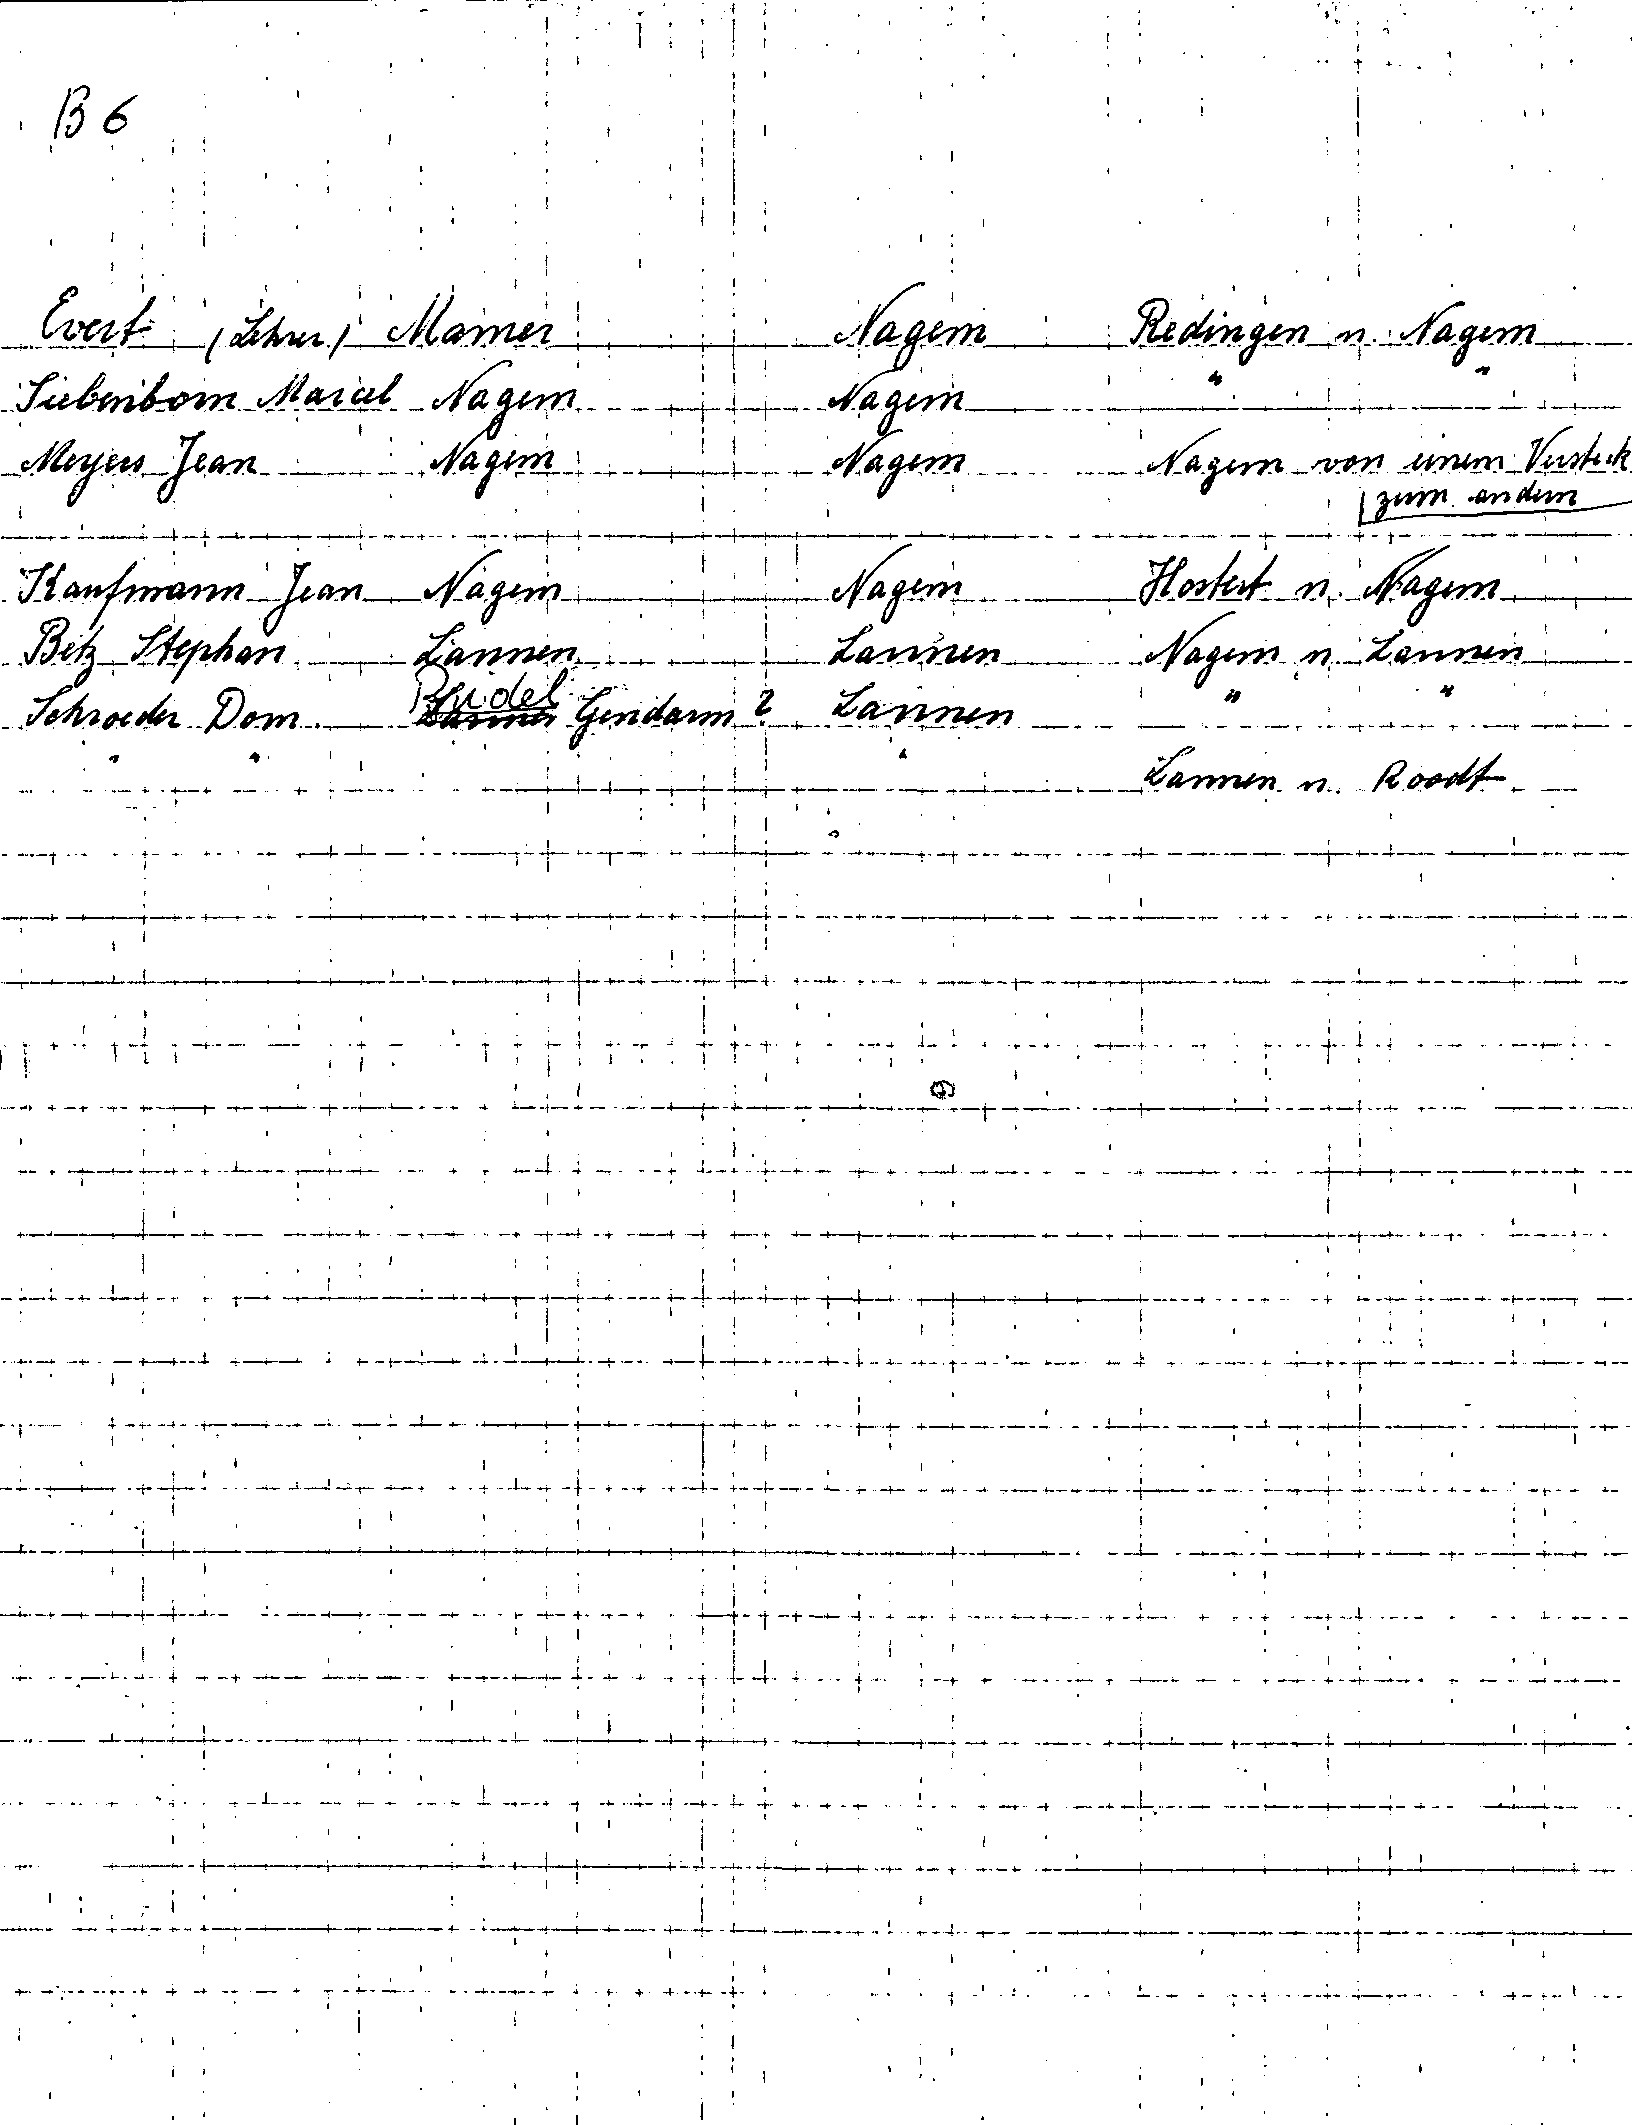 B 6
Evert (Lehrer) Mamer Nagem Redingen n. Nagem
Siebenborn Marcel Nagem Nagem " "
Meyers Jean Nagem Nagem Nagem von einem Versteck
zum andern
Kaufmann Jean Nagem Nagem Hostert n. Nagem
Betz Stephan Lannen Lannen Nagem n. Lannen
Bridel
Schroeder Dom. Gendarm ? Lannen " "
" " " Lannen n. Roodt